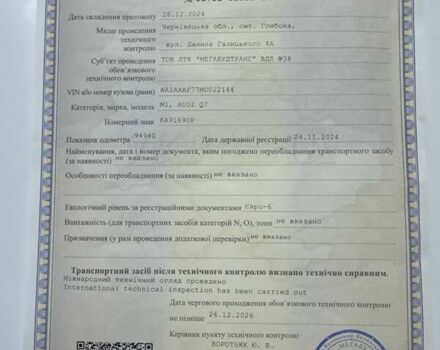 Дата складення протоколу 26.12.2024
Місце проведення Чернівецька обл., смт. Глибока,
технічного
контролю вул. Данила Галицького 4А
Суб'єкт проведення ТОВ ЛТК "МЕГАБУДТРАНС" ВДЛ №38
обов'язкового
технічного контролю
VIN або номер кузова (рами) WA1AXAF77MD022144
Категорія, марка, модель M1, AUDI Q7
Номерний знак KA9169OP
Показник одометра 94940 Дата державної реєстрації 24.11.2024
Найменування, дата і номер документа, яким погоджено переобладнання транспортного засобу
(за наявності) не вказано
Особливості переобладнання (за наявності) не вказано
Екологічний рівень за реєстраційними документами Євро-6
Вантажність (для транспортних засобів категорій N, O), тонн не вказано
Призначення (у разі проведення додаткової перевірки) не вказано
Транспортний засіб після технічного контролю визнано технічно справним.
Міжнародний технічний огляд проведено
International technical inspection has been carried out
Дата чергового проходження обов'язкового технічного контролю
не пізніше 26.12.2026
Керівник пункту технічного контролю
ВОРОТНЯК Ю. В.